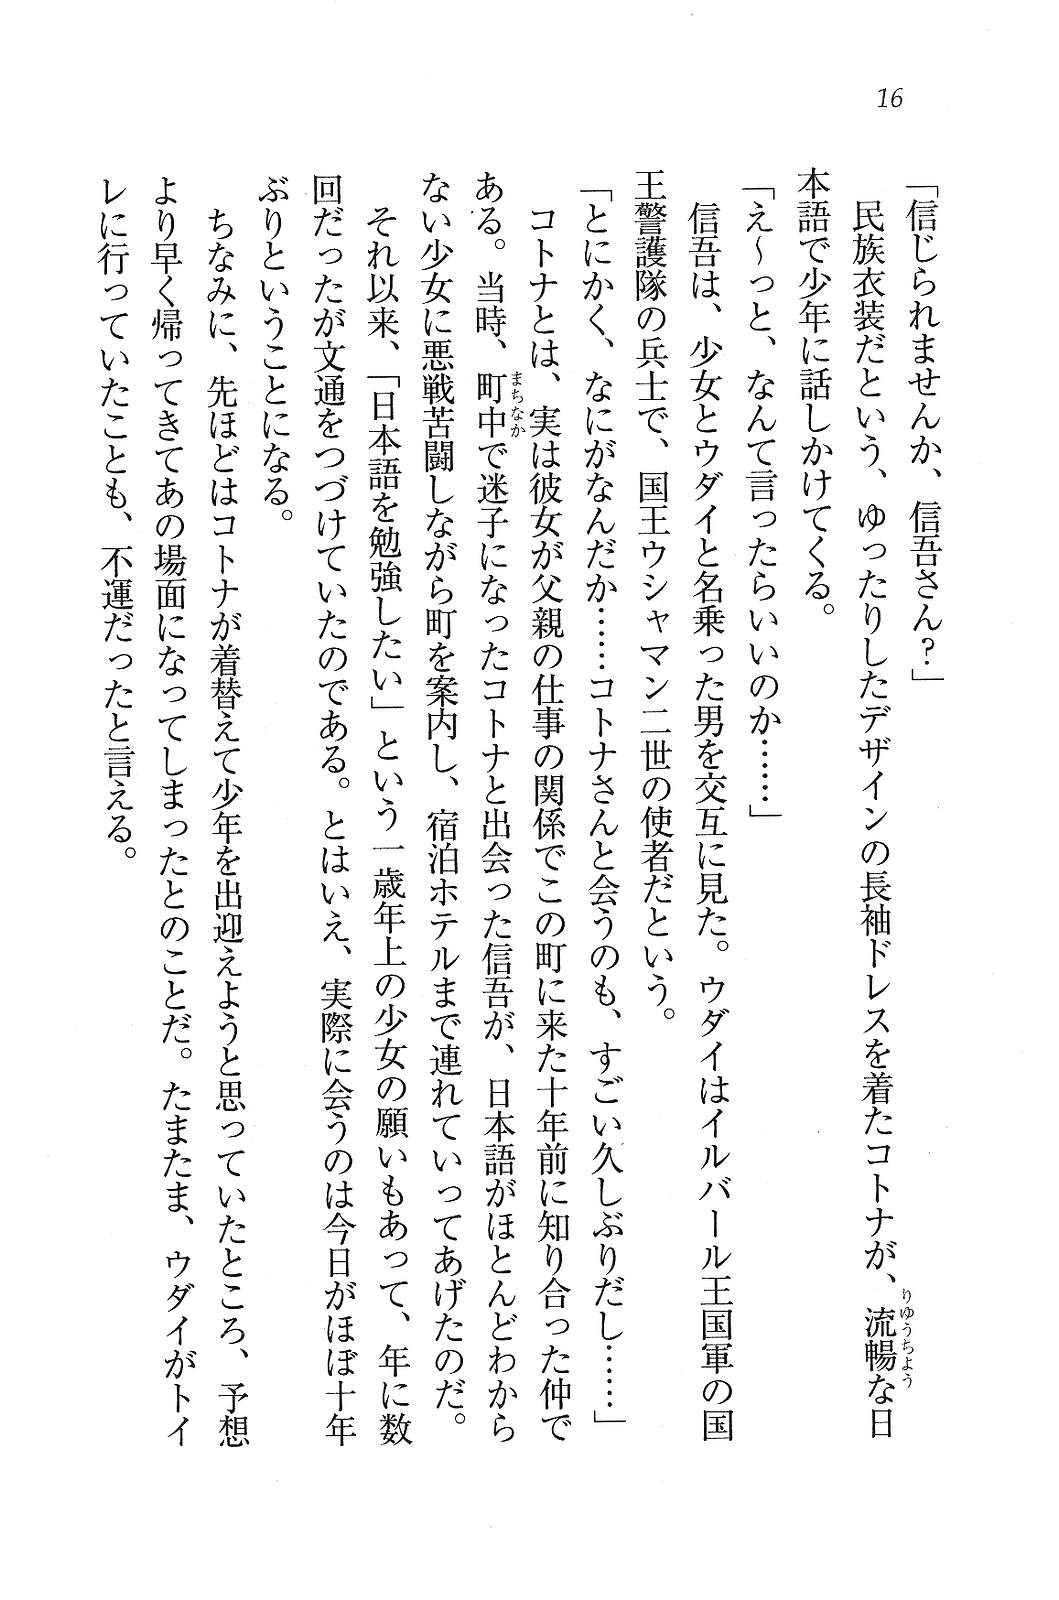 16
「信じられませんか、信吾さん?」
民族衣装だという、ゆったりしたデザインの長袖ドレスを着たコトナが、流暢な日
りゆうちよう
本語で少年に話しかけてくる。
「え〜っと、なんて言ったらいいのか……」
信吾は、少女とウダイと名乗った男を交互に見た。ウダイはイルバール王国軍の国
王警護隊の兵士で、国王ウシャマン二世の使者だという。
「とにかく、なにがなんだか……コトナさんと会うのも、すごい久しぶりだし……」
コトナとは、実は彼女が父親の仕事の関係でこの町に来た十年前に知り合った仲で
ある。当時、町中で迷子になったコトナと出会った信吾が、日本語がほとんどわから
まちなか
ない少女に悪戦苦闘しながら町を案内し、宿泊ホテルまで連れていってあげたのだ。
それ以来、「日本語を勉強したい」という一歳年上の少女の願いもあって、年に数
回だったが文通をつづけていたのである。とはいえ、実際に会うのは今日がほぼ十年
ぶりということになる。
ちなみに、先ほどはコトナが着替えて少年を出迎えようと思っていたところ、予想
より早く帰ってきてあの場面になってしまったとのことだ。たまたま、ウダイがトイ
レに行っていたことも、不運だったと言える。